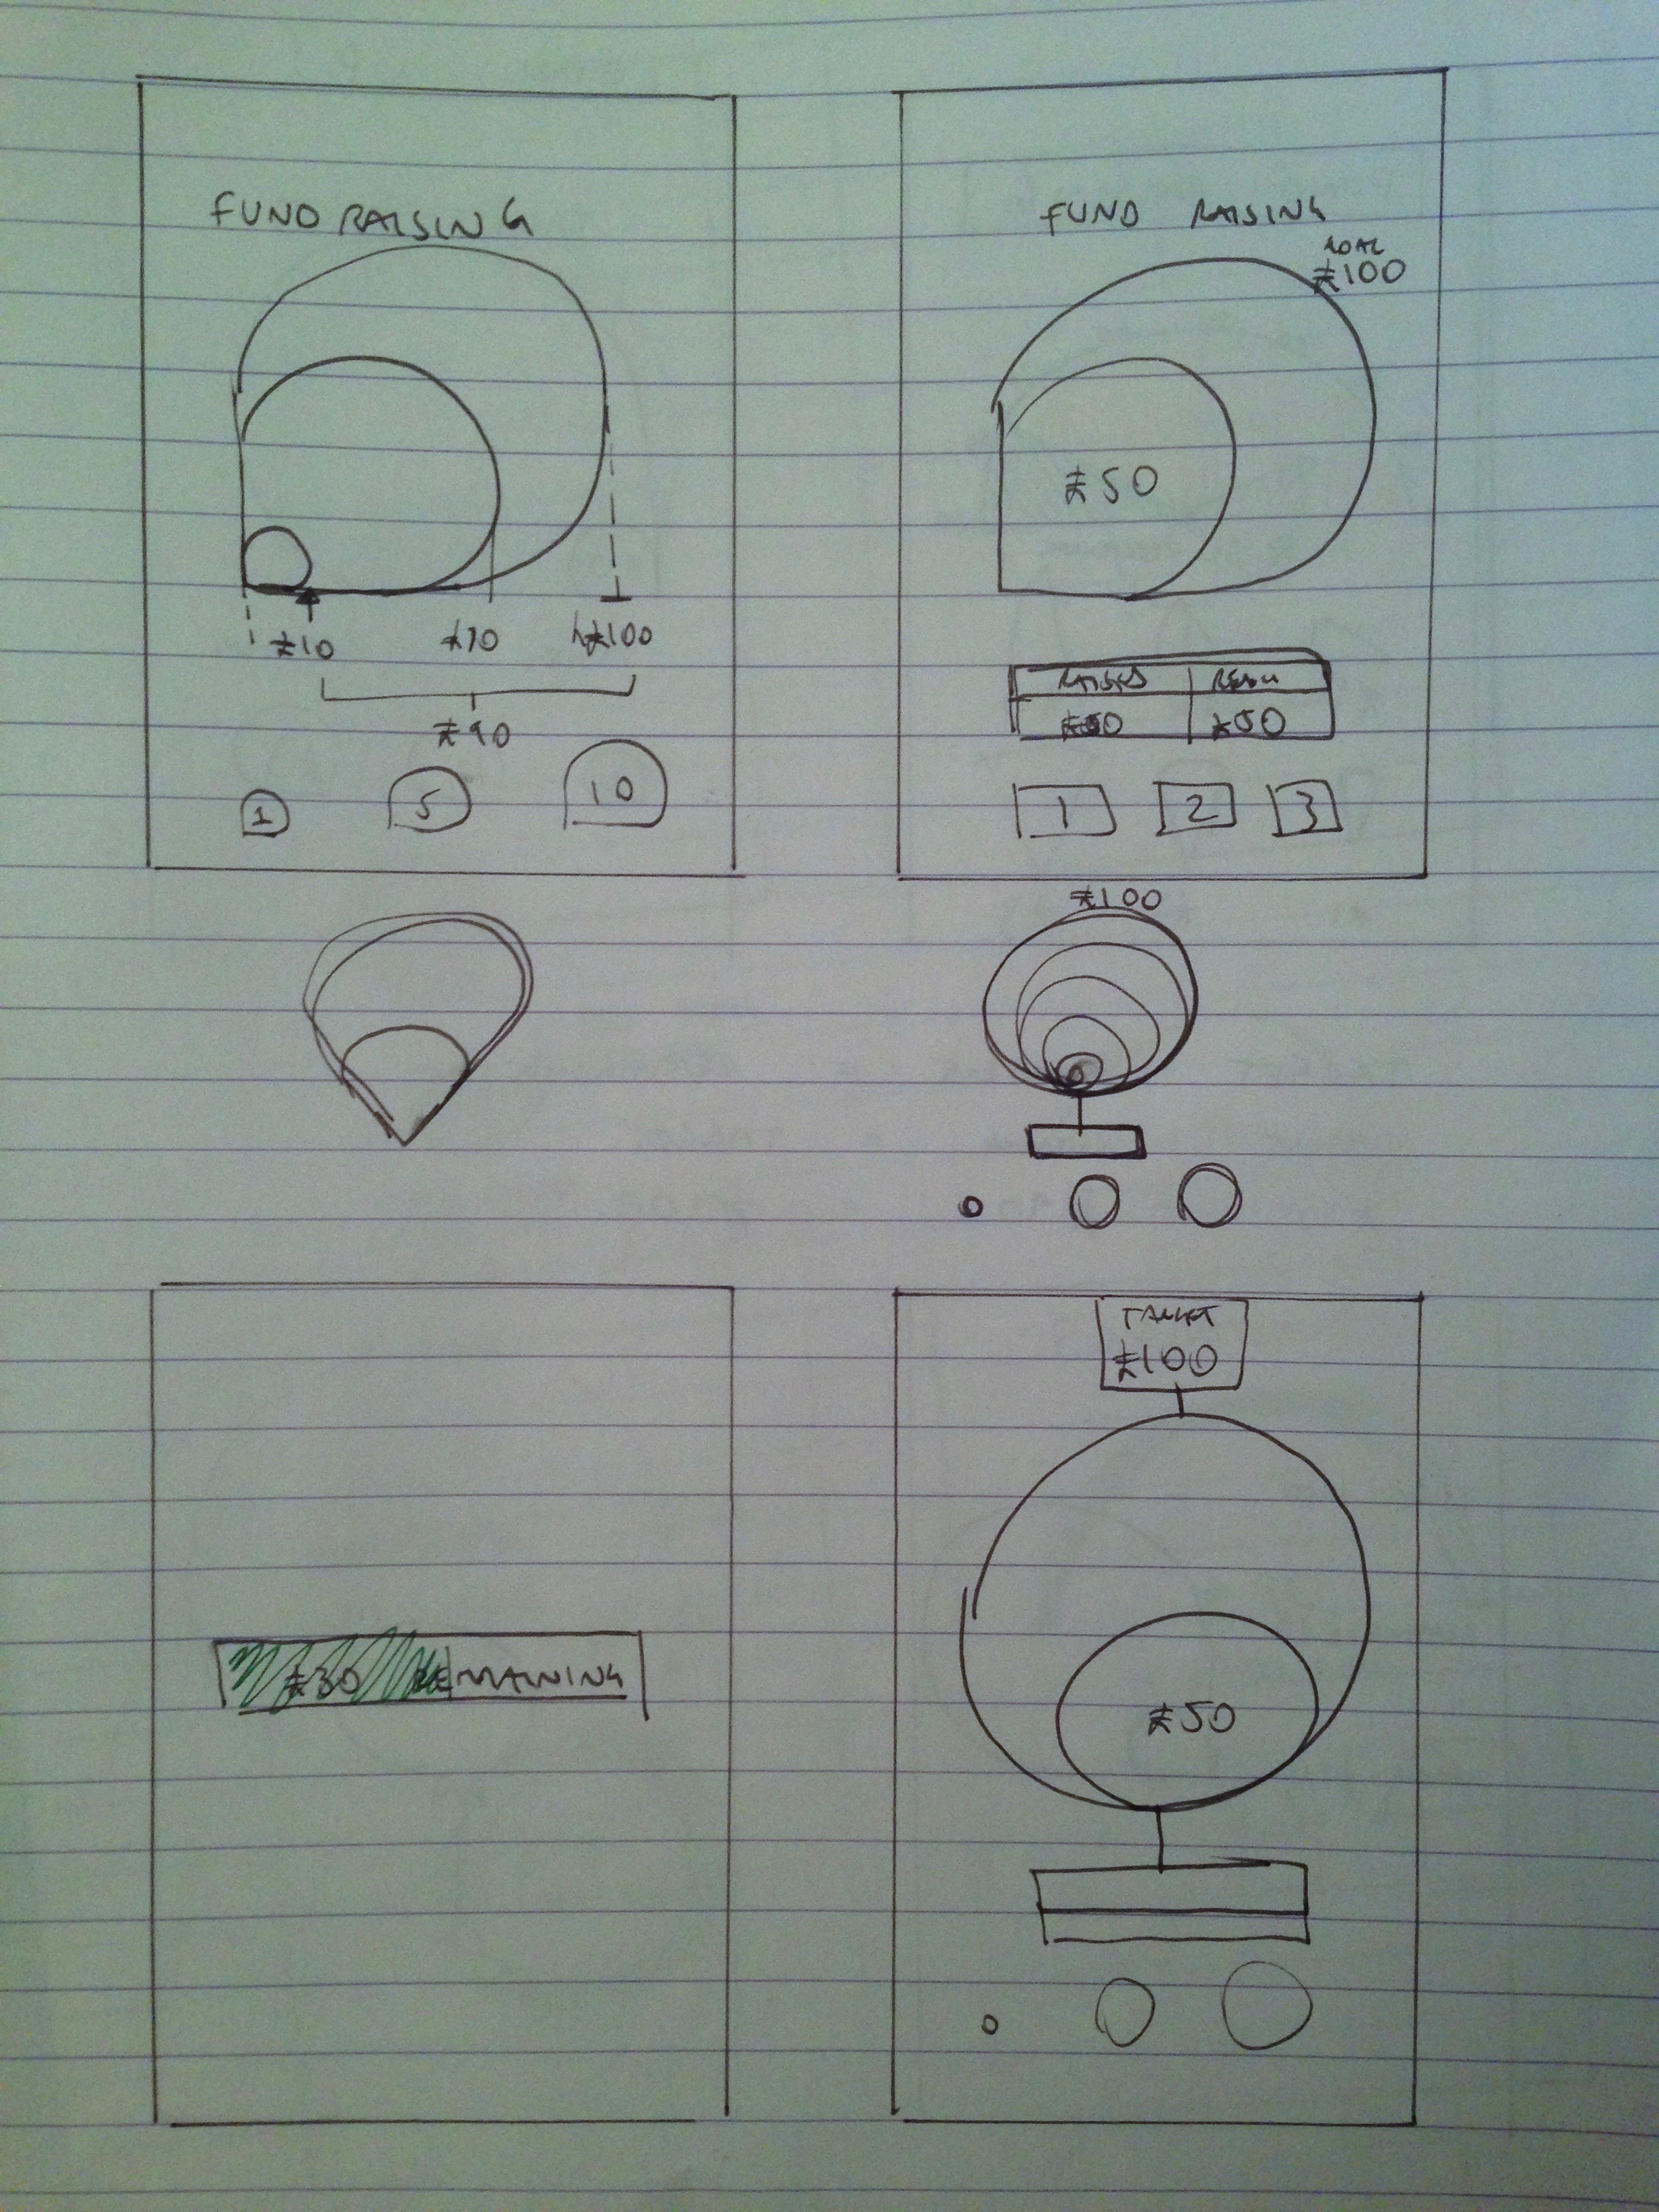 FUND RAISING
£10 £70 £100
£90
1 5 10
FUND RAISING
GOAL
£100
£50
RAISED
£50 £50
1 2 3
£100
£30 REMAINING
TARGET
£100
£50